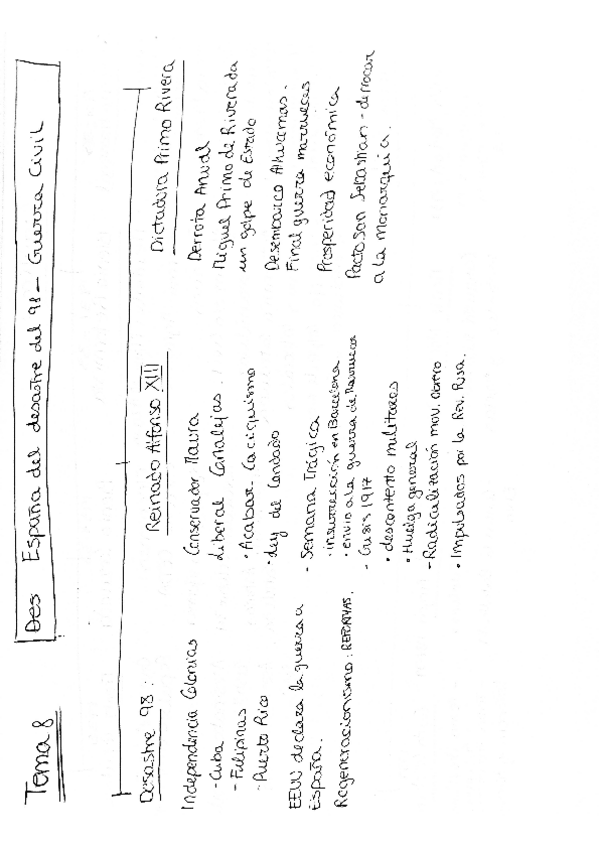 Tema 8
Des España del desastre del 98 - Guerra Civil
Desastre 98:
Independencia Colonias
- Cuba
- Filipinas
- Puerto Rico
EEUU declara la guerra a
España.
Regeneracionismo: REFORMAS.
Reinado Alfonso XIII
Conservador Maura
Liberal Canalejas
· Acabar Caciquismo
· Ley del Candado
- Semana Trágica
· insurrección en Barcelona
· envio a la guerra de Marruecos
- Crisis 1917
· descontento militares
· Huelga general
- Radicalización mov. obrero
· Impulsados por la Rev. Rusa.
Dictadura Primo Rivera
Derrota Anual
Miguel Primo de Rivera da
un golpe de Estado
Desembarco Alhucemas.
Final guerra marruecos
Prosperidad económica
Pacto San Sebastian - derrocar
a la Monarquia.